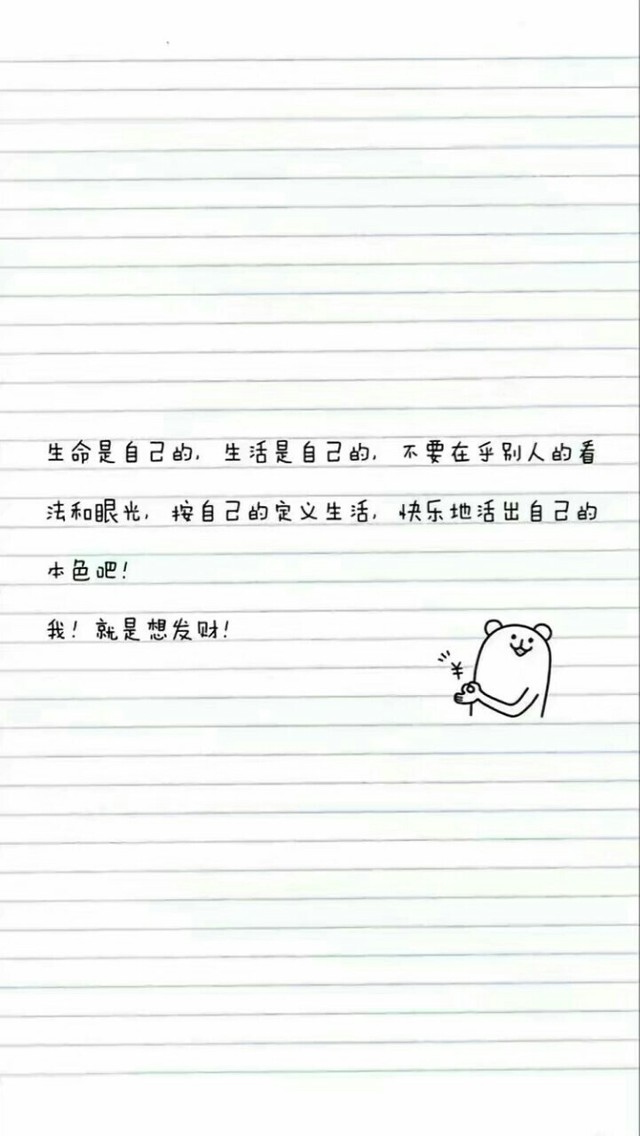 生命是自己的，生活是自己的，不要在乎别人的看
法和眼光，按自己的定义生活，快乐地活出自己的
本色吧！
我！就是想发财！
¥